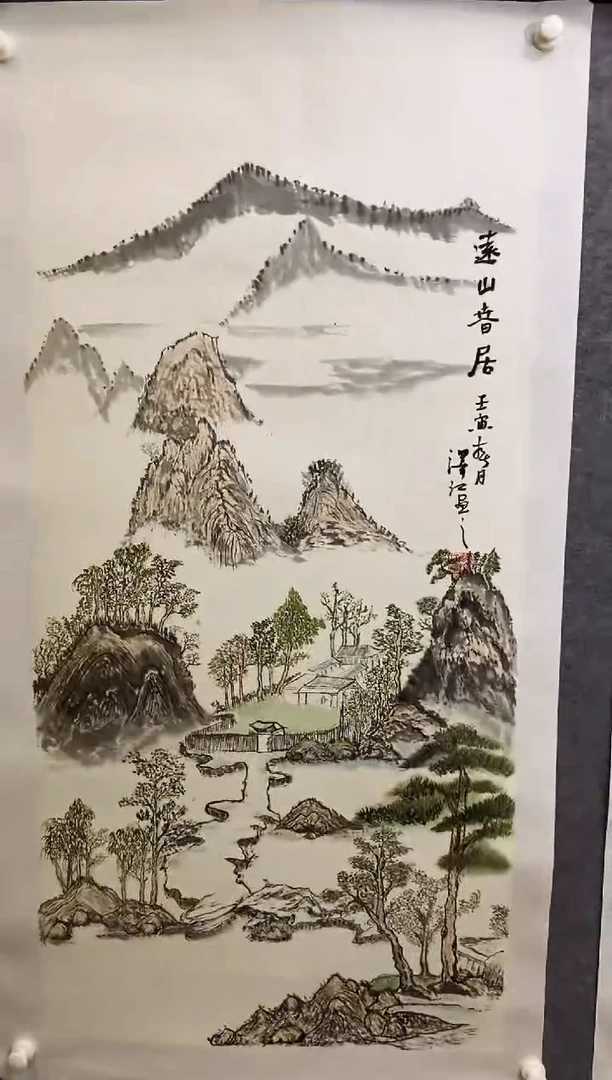 遠山春居
壬寅春月
澤江画之